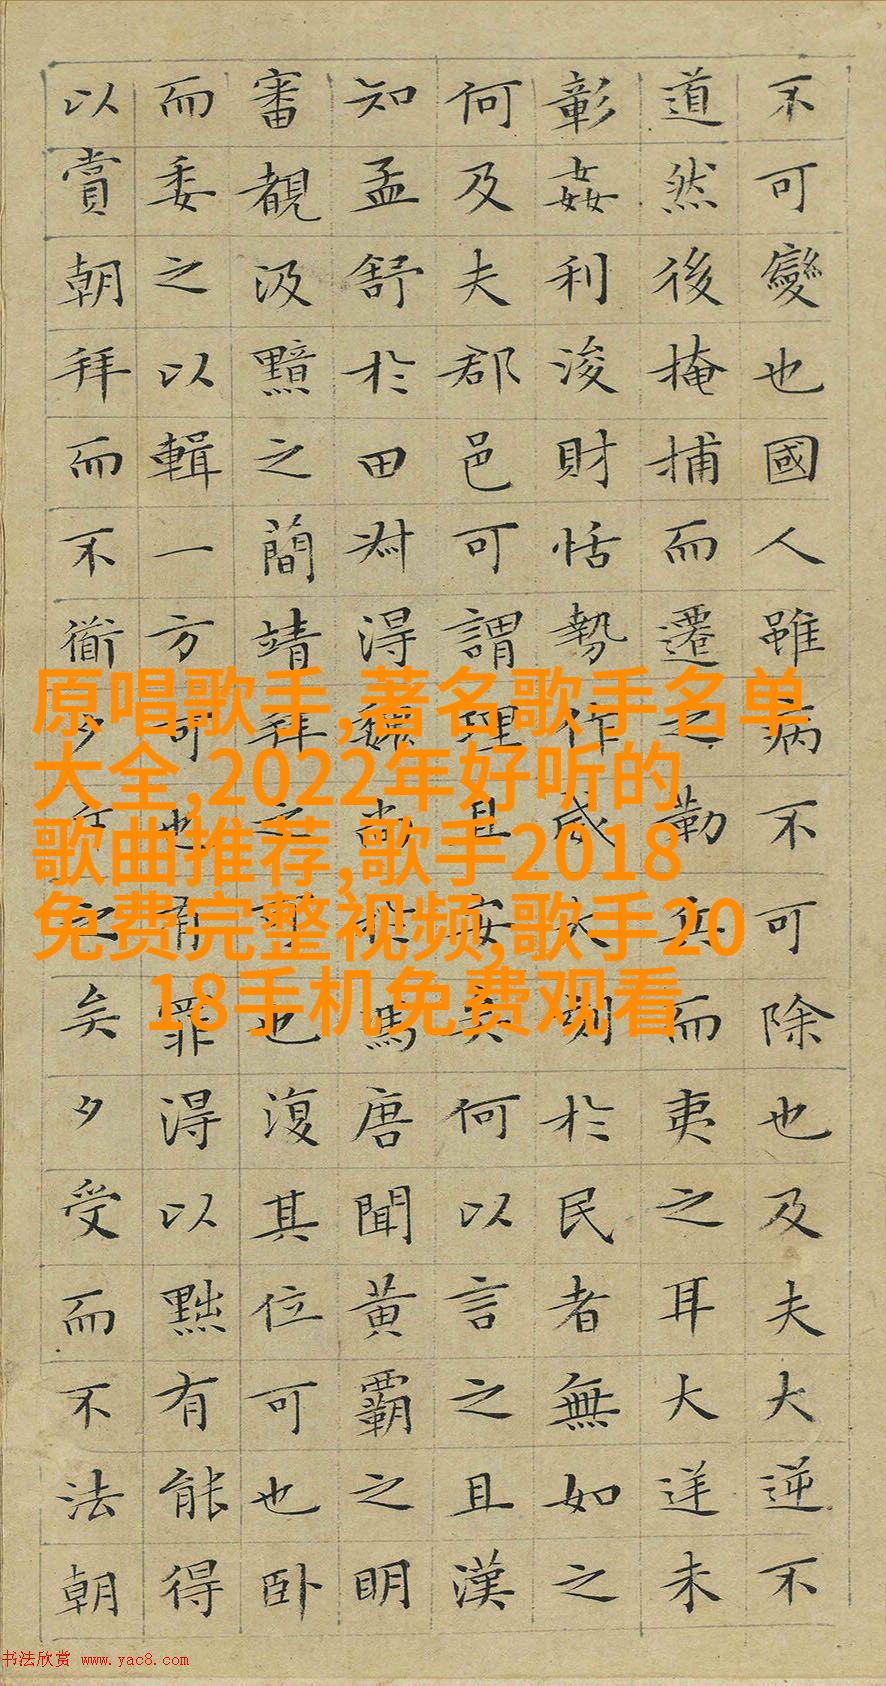 不可變也國人雖病不可除也及夫大逆不
道然後掩捕而遷之勒兵而夷之耳大逆未
彰姦利浚財恬勢作威大刻於民者無如之
何及夫郡邑可謂理且安矣何以言之且漢
知孟舒於田叔得魏尚於馮唐聞黃霸之明
審覩汲黯之簡靖拜之可也復其位可也臥
而委之以輯一方可也有罪得以黜有能得
以賞朝拜而不衜夕斥之矣夕受而不法朝
原唱歌手,著名歌手名单
大全,2022年好听的
歌曲推荐,歌手2018
免费完整视频,歌手20
18手机免费观看
书法欣赏 www.yac8.com